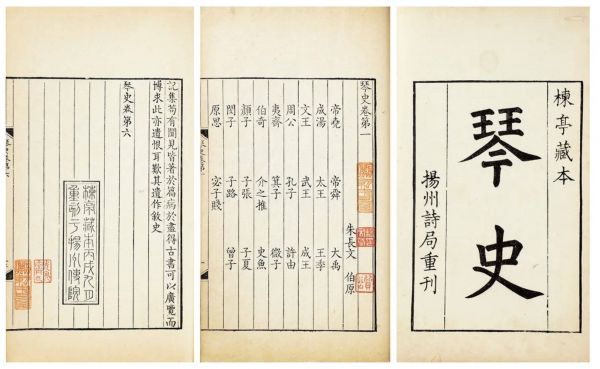 楝亭藏本
琴史
揚州詩局重刊
琴史卷第一
朱長文 伯原
帝堯 帝舜 大禹
成湯 太王 王季
文王 武王 成王
周公 孔子 許由
夷齊 箕子 微子
伯奇 介之推 史魚
顏子 子張 子夏
閔子 子路 曾子
原思 宓子賤
記集苟有聞見皆著於篇病於盡得古書可以廣覽而
博求此亦遺恨耳歎其遺作敘史
琴史卷第六
楝亭藏本丙戌九月
重刻于揚州使院